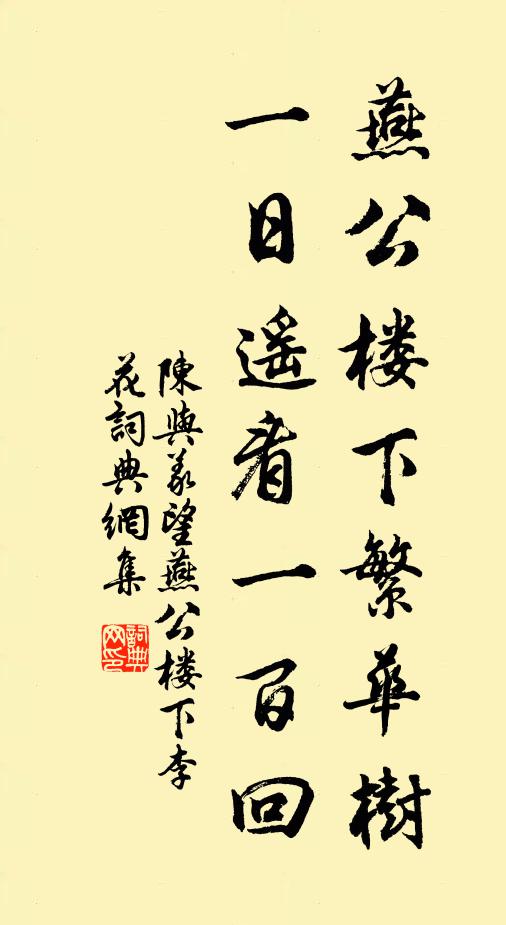 燕公楼下繁華樹
一日遥看一百回
陳與義望燕公楼下李
花詞典網集
詞典
网印